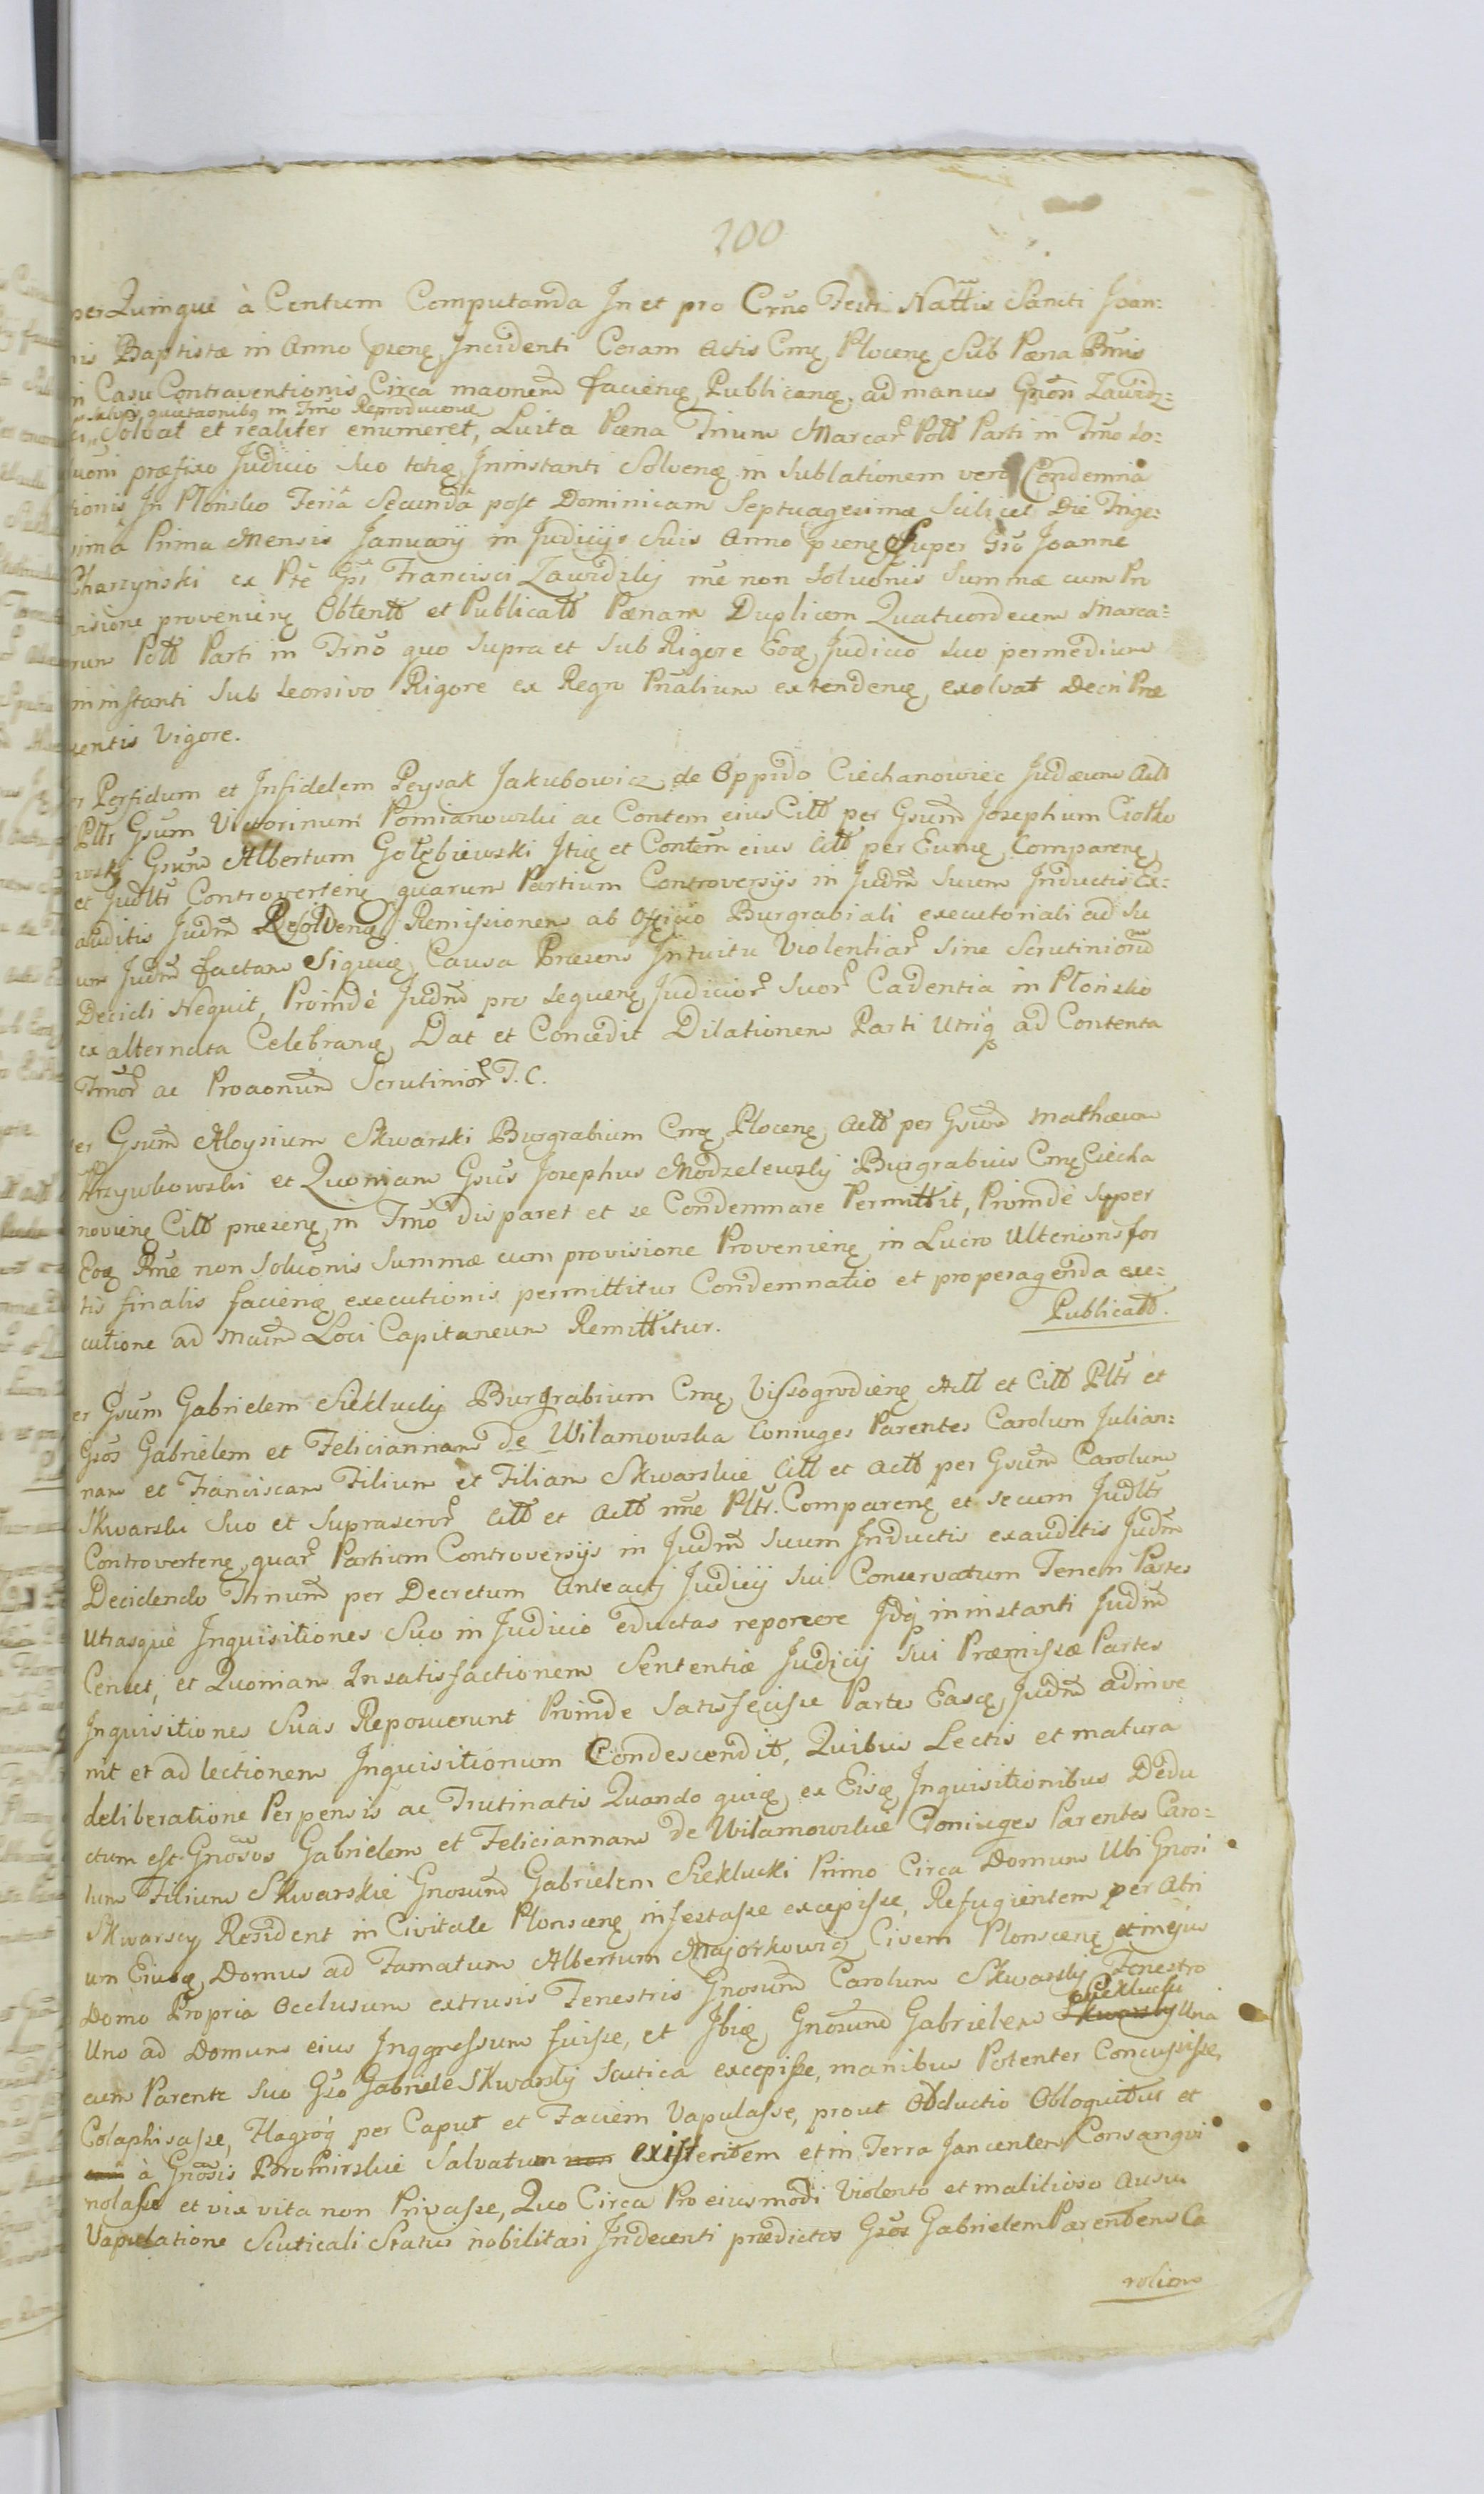 200
per Quinque à Centum Computanda In et pro Crno Festi Nattis Sancti Joan:
nis Baptistæ in Anno præne Incidenti Coram Actis Cme Plocene Sub Pæna Bnis
in Casu Contraventionis Circa maonem faciene Publicane, ad manus Gnon Zawidz:
salvis quietaonibq in Trno Reproducione
Solvat et realiter enumeret, Luita Pæna Trium Marcar Poll Parti in Trno so:
luoni præfixo Judicio suo totiq Ininstanti Solvene in sublationem vero Condemna
tionis In Płońsko Feriâ Secundâ post Dominicam Septuagesimæ Scilicet Die Trige:
sima Prima Mensis Januarij in Judicijs Suis Anno præne Super Gso Joanne
Charzyński ex Pte Gsi Francisci Zawidzkij rne non soluonis Summæ cum Pro
visione proveniene Obtentt et Publicatt Pænam Duplicem Quatuordecem Marca:
rum Poll Parti in Trno quo supra et sub Rigore Eoq Judicio suo permedium
ininstanti sub seorsivo Rigore ex Regro Pnalium extendene exolvat Decri Præ
sentis Vigore.
er Perfidum et Infidelem Peysak Jakubowicz de Oppido Ciechanowiec Judæum Actt
Pltr Gsum Victorinum Pomianowski ac Contem eius Citt per Gsum Josephum Ciołko
wski Gsum Albertum Gołębiewski Itiq et Contem eius Citt per Eumq Comparene
et Judltr Controvertene quarum Partium Controversijs in Judm Suum Inductis Ex:
auditis Judm Resolvene Remissionem ab Officio Burgrabiali executoriali ad Su
um Judm factam Siquiq Causa Præsens Intuitu Violentiar Sine Scrutiniorum
Decidi Nequit, Proindè Judm pro sequene Judicior Suor Cadentia in Płońsko
ex alternata Celebrane Dat et Concedit Dilationem Parti Utriq ad Contenta
Trnor ac Proaonum Scrutinior T. C.
er Gsum Aloysium Skwarski Burgrabium Cme Plocene Actt per Gsum Mathæum
Krzywkowski et Quoniam Gsus Josephus Modzelewskij Burgrabius Cme Ciecha
noviene Citt præsene in Trno disparet et se Condemnare Permittit, Proindè Super
Eoq Rne non Soluonis Summæ cum provisione Proveniene in Lucro Ulterioris for
tis finalis faciene executionis permittitur Condemnatio et pro peragenda exe:
cutione ad Maum Loci Capitaneum Remittitur.
Publicatt.
er Gsum Gabrielem Sieklucky Burgrabium Cme Vissogrodiene Actt et Citt Pltr et
Gsos Gabrielem et Feliciannam de Wilamowska Coniuges Parentes Carolum Julian:
nam et Franciscam Filium et Filiam Skwarskie Citt et Actt per Gsum Carolum
Skwarski Suo et Suprascror Citt et Actt nne Pltr. Comparene et secum Judltr
Controvertene quar Partium Controversijs in Judm Suum Inductis exauditis Judm
Decidendo Trnum per Decretum Anteacti Judicij Sui Conservatum Tenem Partes
Utrasque Inquisitiones Suo in Judicio eductas reponere Idq ininstanti Judm
Censet, et Quoniam Insatisfactionem Sententiæ Judicij Sui Præmissæ Partes
Inquisitiones Suas Reposuerunt Proinde Satisfecisse Partes Easq Judm adinve
nit et ad lectionem Inquisitionum Condescendit, Quibus Lectis et matura
deliberatione Perpensis ac Trutinatis Quando quiq ex Eisq Inquisitionibus Dedu
ctum est Gnosos Gabrielem et Feliciannam de Wilamowskie Coniuges Parentes Caro:
lum Filium Skwarskie Gnosum Gabrielem Sieklucki Primo Circa Domum Ubi Gnosi
Skwarscy Resident in Civitate Plonscene infestasse excepisse, Refugientem per Atri
um Eiusq Domus ad Famatum Albertum Majorkowicz Civem Plonscene et in ejus
Domo Propria Occlusum extrusis Fenestris Gnosum Carolum Skwarsky Fenestro
Uno ad Domum eius Inggressum fuisse, et Ibiq Gnosum Gabrielem Sieklucki Skwarsky Una
cum Parente Suo Gso Gabriele Skwarsky Scutica excepisse, manibus Potenter Concussisse,
Colaphisasse, Flagróq per Caput et Faciem Vapulasse, prout Obductio Obloquitur et
à Gnosis Bromirskie Salvatum non existentem et in Terra Jancentem Consangvi
nolasse et vix vita non Privasse, Quo Circa Pro eiusmodi Violento et malitioso Ausu
Vapulatione Scuticali Status nobilitari Indecenti prædictos Gsos Gabrielem Parentem Ca
rolum